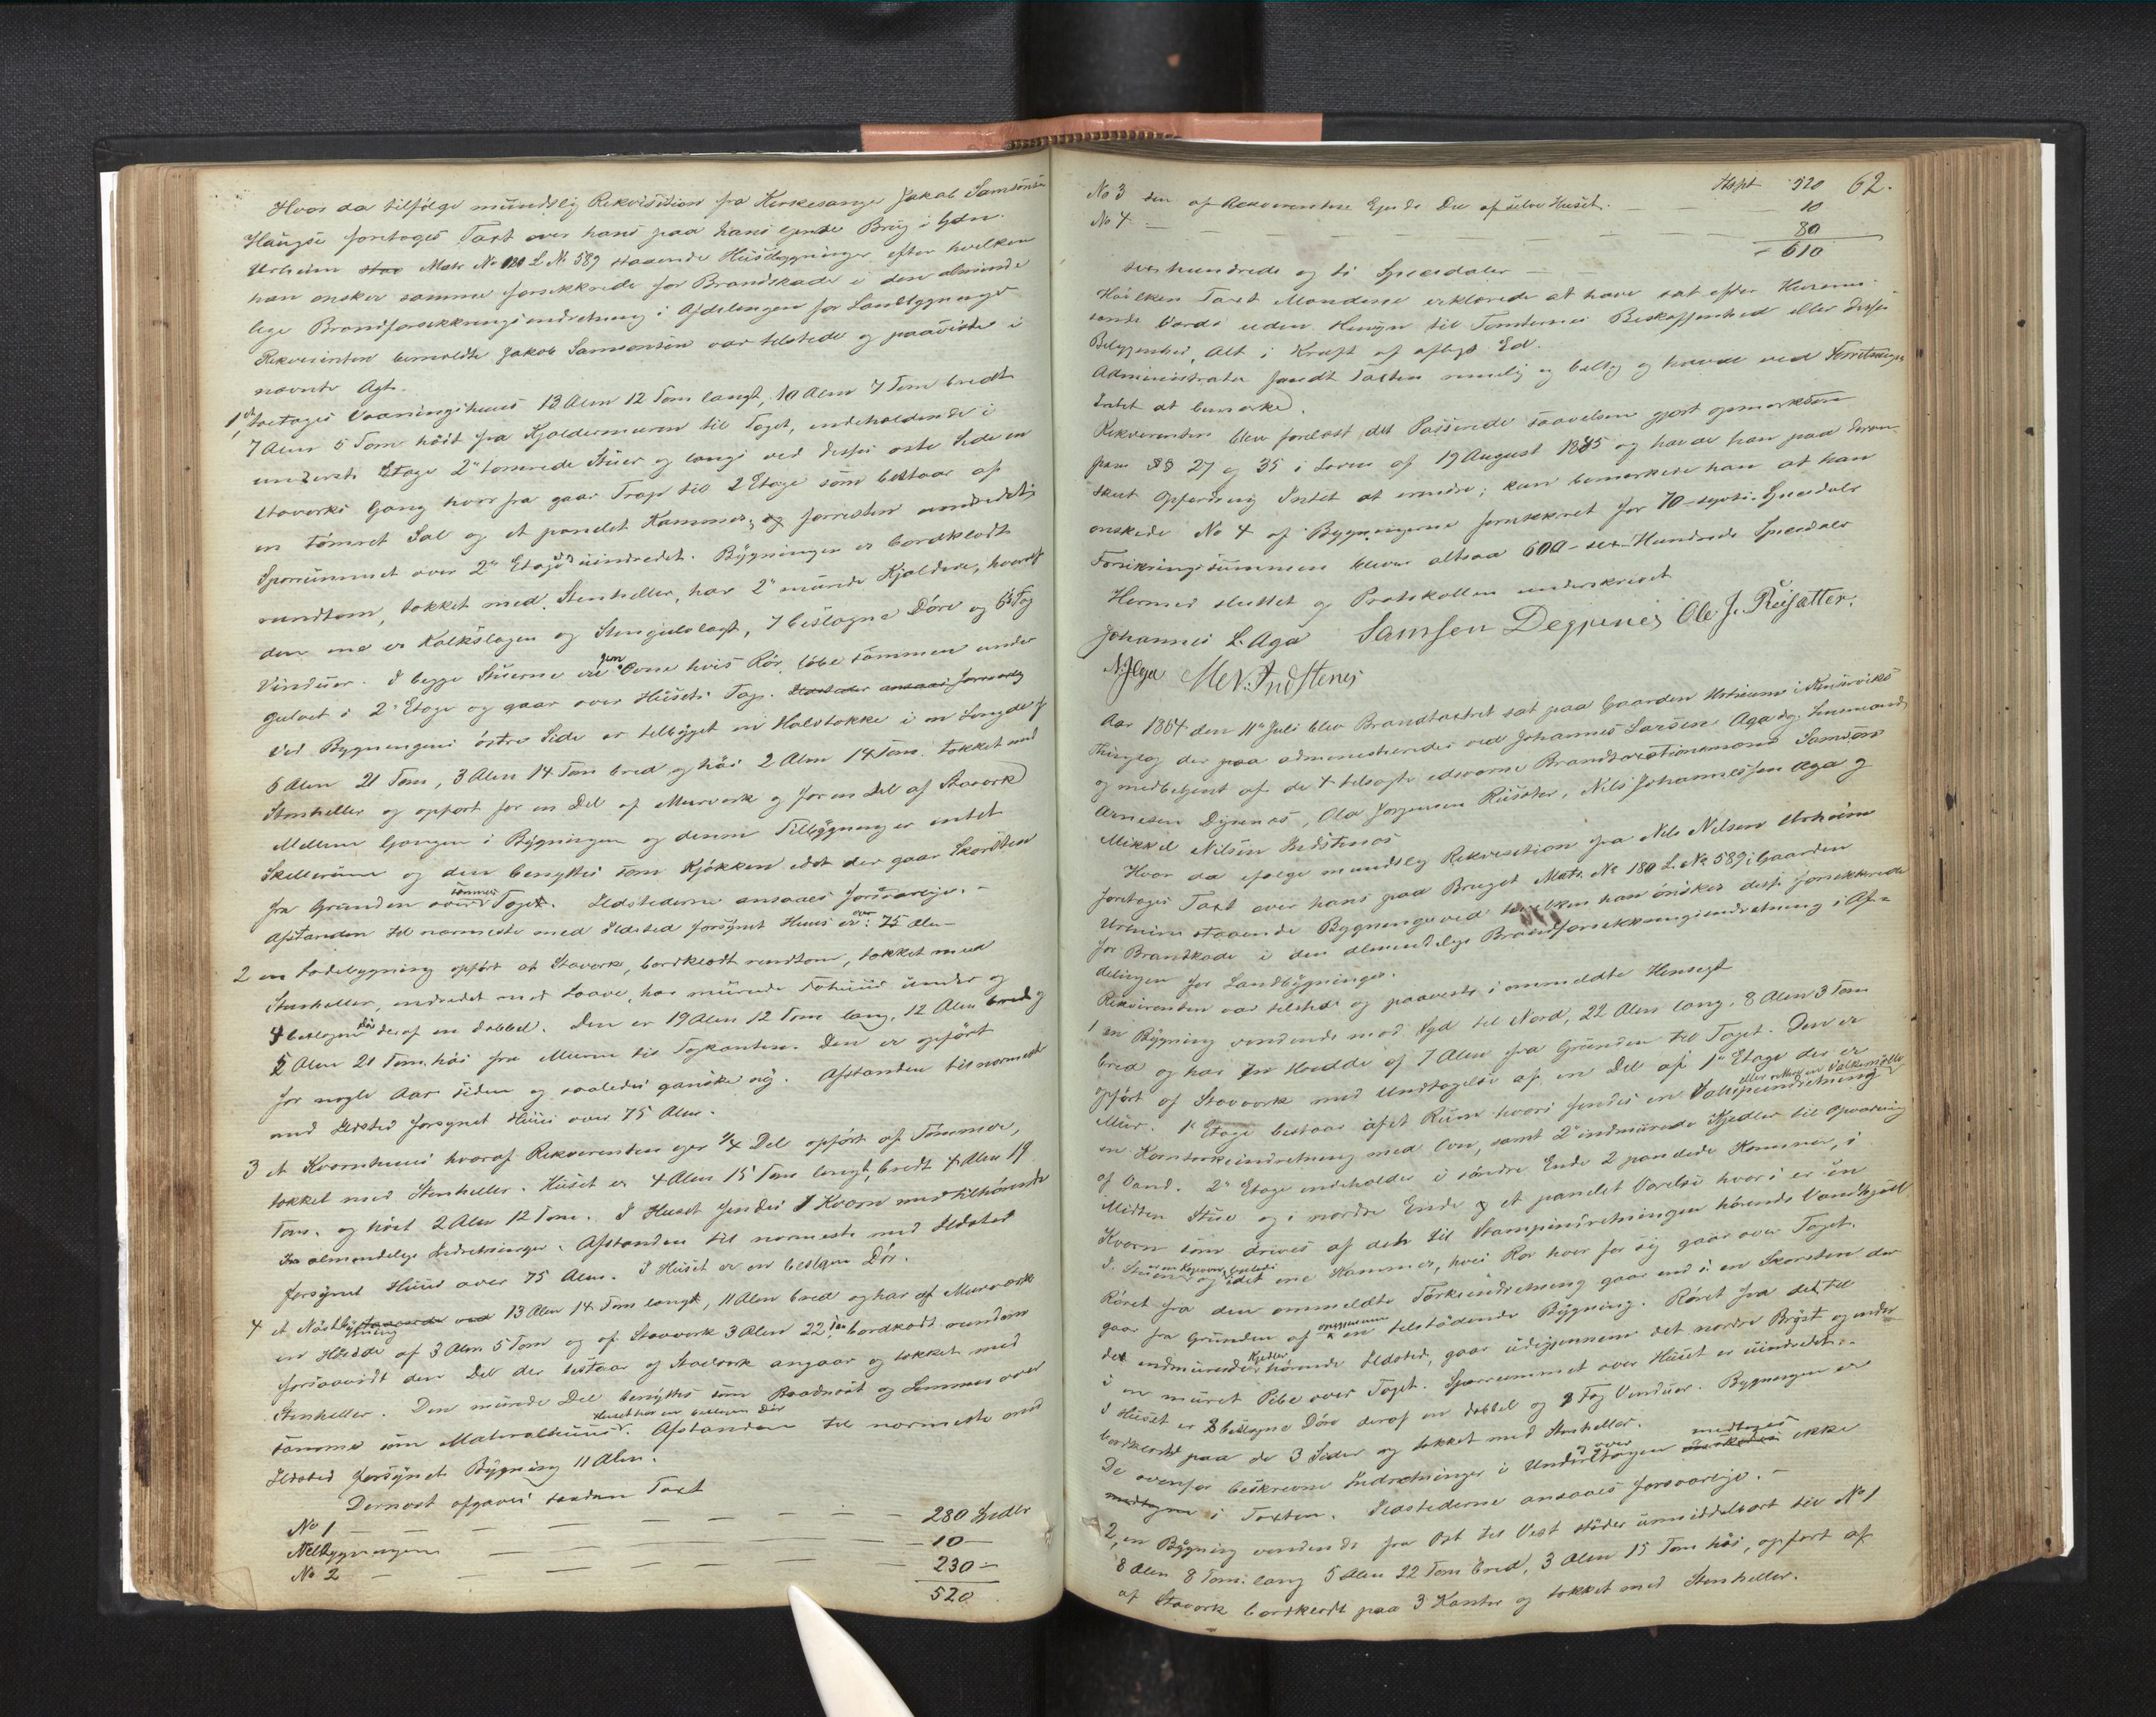 Hvor da tilfølge mundtlig Rekvisition fra Kirkesanger Jakob Samsonsen
Haugse foretoges Taxt over hans paa hans eiende Brug i Gdn.
Urheim Matr No 180 L. No 589 staaende Huusbygninger, efter hvilken
han ønsker samme forsikkrede for Brandskade i den alminde
lige Brandforsikkringsindretning i Afdelingen for Landbygninger
Rekvirenten bemeldte Jakob Samsonsen var tilstede og paaviste i
nævnte Agt.
1 et toetages Vaaningshuus 13 Alen 12 Tom langt, 10 Alen 7 Tom bredt
7 Alen 5 Tom høit fra Kjeldermuren til Taget, indeholdende i
underste Etage 2de tømrede Stuer og langs ved disses østre Side en
Stavverks Gang hvorfra gaar Trap til 2 Etage som bestaar af
en tømret Sal og et panelet Kammer, forresten uindredet
Sperrummet over 2den Etage uindredet. Bygningen er bordklædt
rundtom, tækket med Stenheller, har 2de murede Kjeldere, hvoraf
den ene er Kalkslagen og Stengulvlagt, 7 beslagne Døre og 6 Fag
Vinduer. I begge Stuerne ere Jern Ovne hvis Rør løbe sammen under
gulvet i 2. Etage og gaar over Husets Tag.
Ved Bygningens østre Side er tilbygget en Halvtække i en Længde af
6 Alen 21 Tom, 3 Alen 14 Tom bred og høi 2 Alen 14 Tom. tækket med
Stenheller og opført for en Del af Murverk og for en Del af Stavverk
Mellem Gangen i Bygningen og denne Tilbygning er intet
Skillerum og den benyttes som Kjøkken idet der gaar Skorsten
fra Grunden over sammes Taget. Ildstederne ansaaes forsvarlige. -
Afstanden til nærmeste med Ildsted forsynet Huus er over 75 Alen -
2 en Ladebygning opført af Stavverk, bordklædt rundtom, tækket med
Stenheller, indredet med Laave, har murede Fæhuus under og
4 beslagne Døre deraf en dobbel. Den er 19 Alen 12 Tom lang, 12 Alen bred og
5 Alen 21 Tom. høi fra Muren til Tagkanten. Den er opført
for nogle Aar siden og saaledes ganske nÿ. Afstanden til nærmeste
med Ildsted forsynet Huus over 75 Alen.
3 et Kvernhuus hvoraf Rekvirenten eger 1/4 Del opført af Tømmer,
tækket med Stenheller. Huset er 4 Alen 15 Tom langt, bredt 4 Alen 19
Tom. og høit 2 Alen 12 Tom. I Huset findes 1 Kvern med tilhørende
almindelige Indretninger. Afstanden til nærmeste med Ildsted
forsynet Huus over 75 Alen. I Huset er en beslagen Dør.
4 et Nøstbygning 13 Alen 14 Tom langt, 11 Alen bred og har af Murverk
en Høide af 3 Alen 5 Tom og af Stavverk 3 Alen 22 Tom bordklædt rundom
forsaavidt den Del der bestaar af Stavverk angaar og tækket med
Stenheller. Den murede Del benyttes som Baadnøst og Lemmen over
samme som Materialhuus. Huset har en beslagen Dør Afstanden til nærmeste med
Ildsted forsynet Bygning 11 Alen.
Dernæst afgaves saadan Taxt
No 1 280 Spdlr
Tilbygningen 10 -
No 2 230 -
520
Trspt 520 62.
No 3 den af Rekvirenten Eiende Del af selve Huset. 10
No 4 80
610
sexhundrede og ti Speciedaler
Hvilken Taxt Mændene erklærede at have sat efter Husenes
sande Værdi uden Hensyn til Tomternes Beskaffenhed eller disses
Beliggenhed, Alt i Kraft af aflagt Ed.
Administrator fandt Taxten rimelig og billig og havde ved Forretningen
Intet at bemærke.
Rekvirenten blev forelæst det Passerede saavelsom gjort opmærksom
paa §§ 27 og 35 i Loven af 19 August 1845 og havde han paa derom
skeet Opfordring Intet at erindre; kun bemærkede han at han
ønskede No 4 af Bygningerne forsikkret for 70 - sytti - Speciedaler
Forsikringssummen bliver altsaa 600 - sex Hundrede Speciedaler
Hermed sluttet og Protokollen underskrevet
Johannes L. Aga Samsen Deypenes Ole J. Reisætter.
N. J. Aga M. N. Indstenes
Aar 1864 den 11te Juli blev Brandtaxtret sat paa Gaarden Urheim i Kinserviks
Thinglag der administreredes ved Johannes Larsen Aga som Lensmand
og medbetjent af de 4 tilsagte edsvorne Brandtaxtionsmænd Samson
Arnesen Dÿrenæs, Ola Jørgensen Reisæter, Nils Johannessen Aga og
Mikkel Nilsen Indstenæs
Hvor da ifølge mundtlig Rekvisition fra Nils Nilsen Urheim
foretoges Taxt over hans paa Bruget Matr. No 180 L. No 589 i Gaarden
Urheim staaende Bygninger ved hvilken han ønsker disse forsikkrede
for Brandskade i den almindelige Brandforsikkringsindretning i Af-
delingen for Landbygninger.
Rekvirenten var tilstede og paaviste i ommeldte Hensigt
1 en Bygning vendende mod Syd til Nord, 22 Alen lang, 8 Alen 3 Tom
bred og har en Høide af 7 Alen fra Grunden til Taget. Den er
opført af Stavverk med Undtagelse af en Del af 1ste Etage der er
Mur. 1ste Etage bestaar af et Rum hvori findes en Valkeindretning eller saakaldt en Valkemølle
en Korntørkeindretning med Ovn, samt 2de indmurede Kjedler til Opvarming
af Vand. 2den Etage indeholder i søndre Ende 2 panelede Kammer, i
Midten Stue og i nordre Ende et panelet Værelse hvori er en
Kvern som drives af det til Stampindretningen hørende Vandhjul
I Stuen og i det ene Kammer, hvis Rør hver for sig gaar over Taget.
Røret fra den ommeldte Tørkeindretning gaar ind i en Skorsten der
gaar fra Grunden af en tilstødende Bygning. Røret fra det til
de indmurede Kjedler hørende Ildsted, gaar udigjennem det nordre Brÿst og ender
i en muret Pibe over Taget. Sperrummet over Huset er uindredet.
I Huset er 8 beslagne Døre deraf en dobbel og 8 Fag Vinduer. Bygningen er
bordklædt paa de 3 Sider og tækket med Stenheller.
De ovenfor beskrevne Indretninger i Underetagen medtages ikke
i Taxten. Ildstederne ansaaes forsvarlige. -
2, en Bygning vendende fra Øst til Vest støder umiddelbart til No 1
8 Alen 8 Tom. lang 5 Alen 22 Tom bred, 3 Alen 15 Tom høi, opført af
af Stavverk bordklædt paa 3 Kanter og tækket med Stenheller.